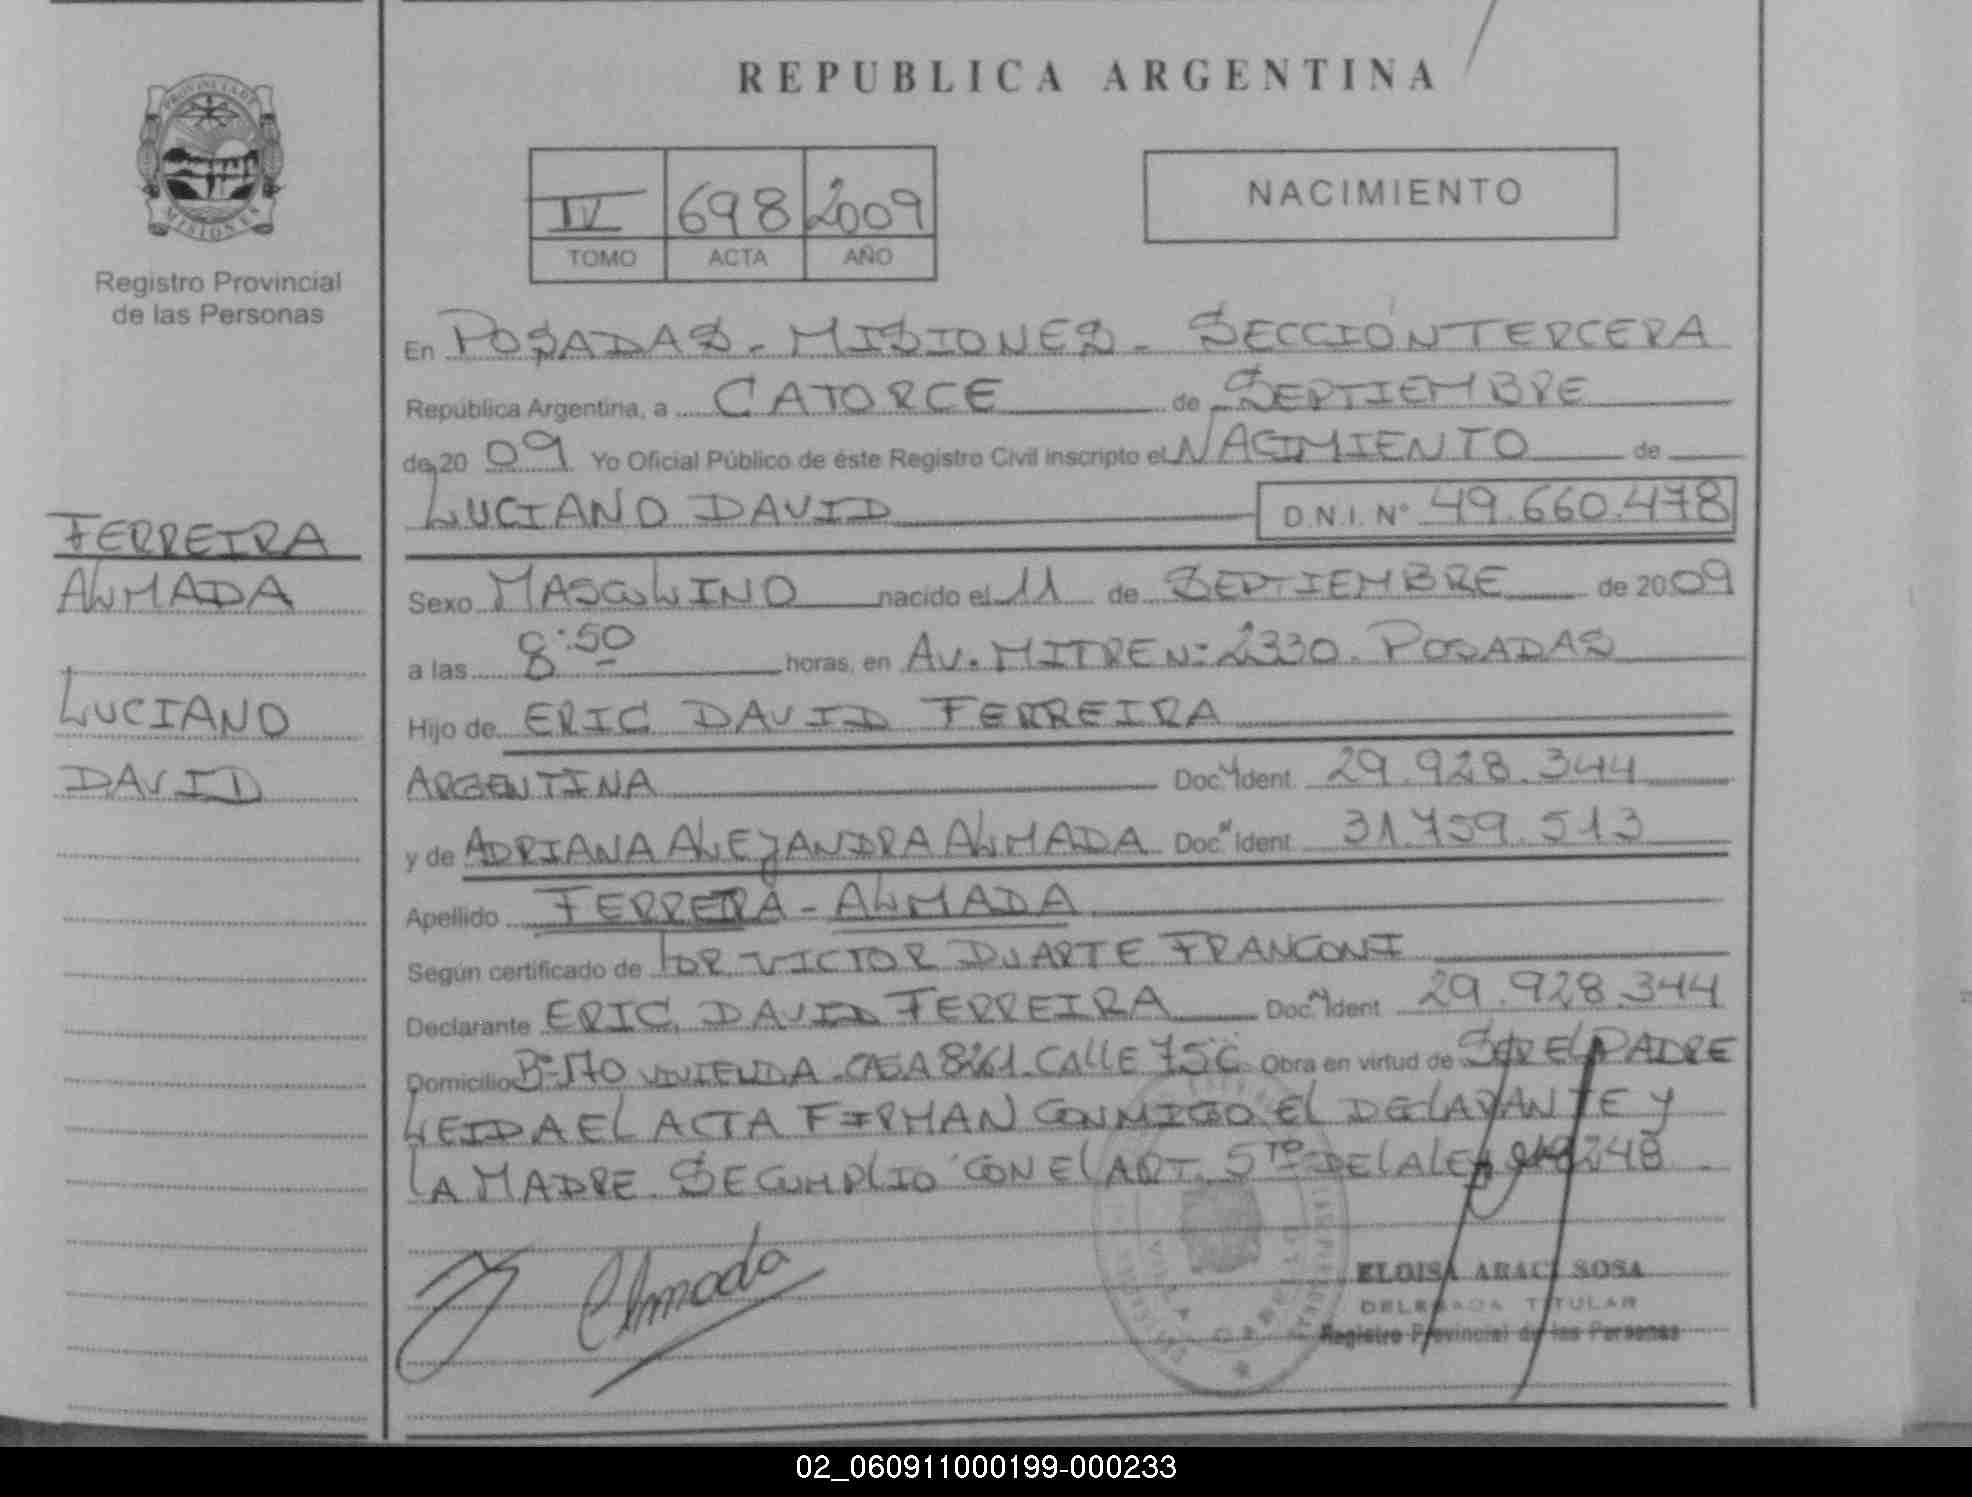 PROVINCIA DE
MISIONES
Registro Provincial
de las Personas
FERREIRA
ALMADA
LUCIANO
DAVID
REPUBLICA ARGENTINA
IV 698 2009
TOMO ACTA AÑO
NACIMIENTO
En POSADAS - MISIONES - SECCIÓN TERCERA
República Argentina, a CATORCE de SEPTIEMBRE
de 20 09 Yo Oficial Público de éste Registro Civil inscripto el NACIMIENTO de
LUCIANO DAVID D.N.I. N° 49.660.478
Sexo MASCULINO nacido el 11 de SEPTIEMBRE de 20 09
a las 8:50 horas, en AV. MITRE Nº 2330. POSADAS
Hijo de ERIC DAVID FERREIRA
ARGENTINA Doc. Ident. 29.928.344
y de ADRIANA ALEJANDRA ALMADA Doc. Ident. 31.759.513
Apellido FERREIRA - ALMADA
Según certificado de DR. VICTOR DUARTE FRANCONI
Declarante ERIC DAVID FERREIRA Doc. Ident 29.928.344
Domicilio Bº 570 VIVIENDA CASA 8261 CALLE 75C Obra en virtud de SER EL PADRE
LEIDA EL ACTA FIRMAN CONMIGO EL DECLARANTE Y
LA MADRE. SE CUMPLIO CON EL ART. 5TO DE LA LEY 18248
Almada
ELOISA ARACI SOSA
DELEGADA TITULAR
Registro Provincial de las Personas
02_060911000199-000233